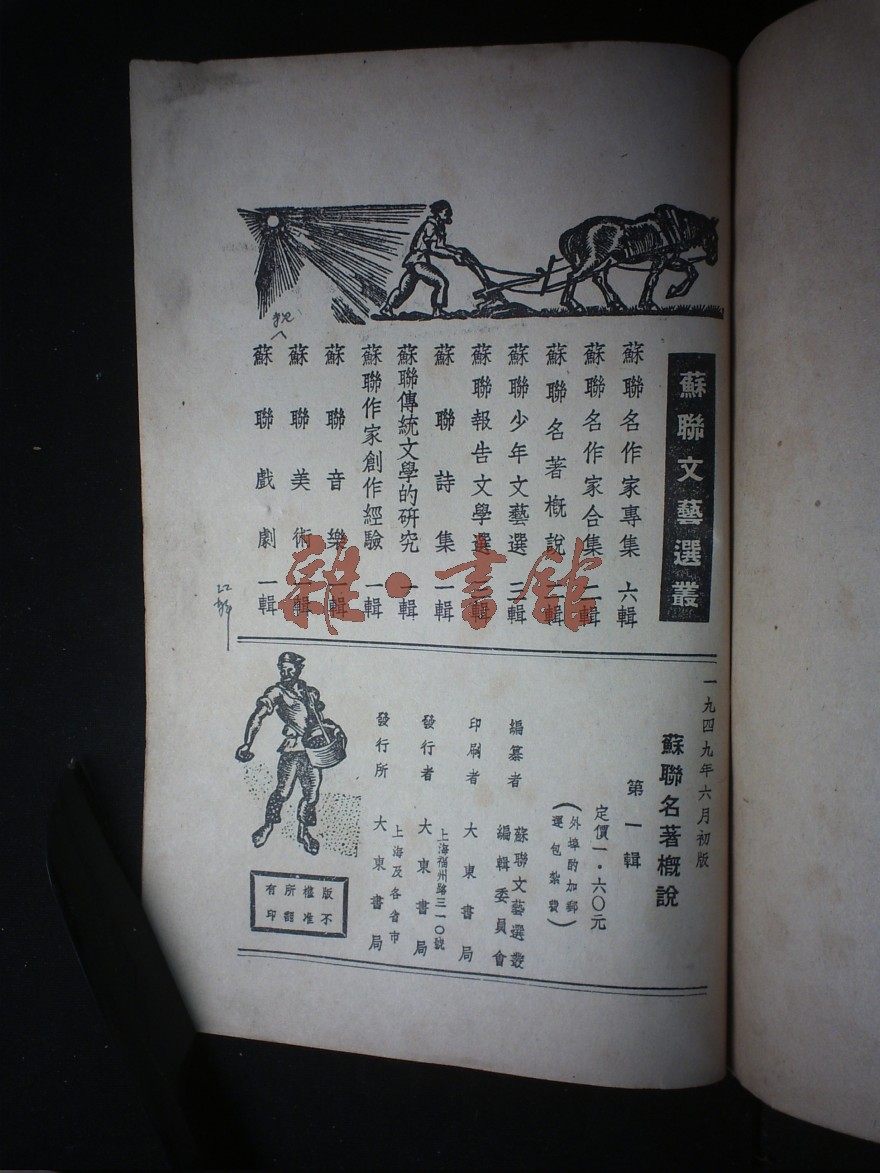 蘇聯文藝選叢
蘇聯名作家專集 六輯
蘇聯名作家合集 二輯
蘇聯名著概說 二輯
蘇聯少年文藝選 三輯
蘇聯報告文學選 二輯
蘇聯詩集 一輯
蘇聯傳統文學的研究 一輯
蘇聯作家創作經驗 一輯
蘇聯音樂 一輯
蘇聯美術 一輯
蘇聯戲劇 一輯
一九四九年六月初版
蘇聯名著概說
第一輯
定價一・六〇元
(外埠酌加郵
運包紮費)
編纂者 蘇聯文藝選叢
編輯委員會
印刷者 大東書局
上海福州路三一〇號
發行者 大東書局
上海及各省市
發行所 大東書局
版權所有
不准翻印
雜・書館